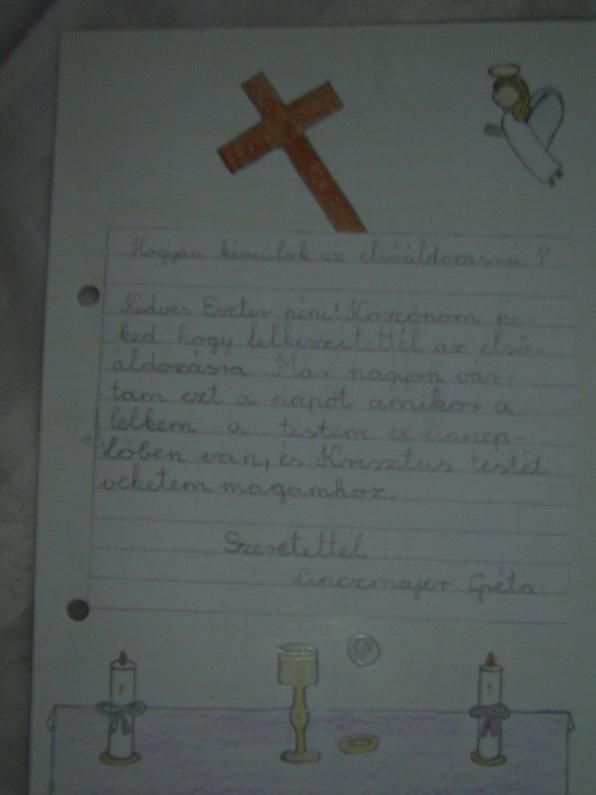 Hogyan készülök az elsőáldozásra?
Kedves Eszter néni! Köszönöm ne-
ked hogy felkészítettél az első-
áldozásra. Már nagyon vár-
tam ezt a napot amikor a
lelkem a testem is ünnep-
lőben van, és Krisztus testét
vehetem magamhoz.
Szeretettel
Linczmajer Gréta.